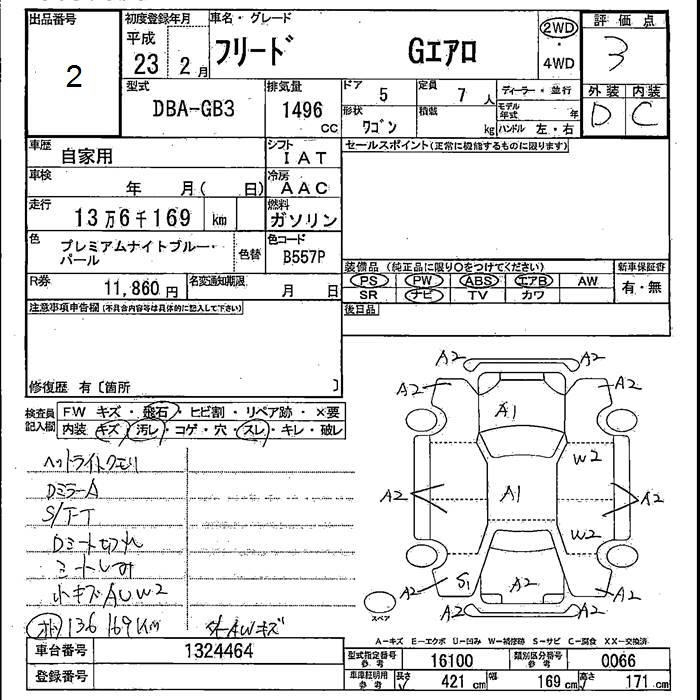 出品番号 初度登録年月 車名・グレード 評価点
2 平成 23 2月 フリード Gエアロ 2WD・4WD 3
型式 DBA-GB3 排気量 1496 cc
ドア 5 定員 7 人 ディーラー・並行 外装 内装
形状 ワゴン 積載 kg モデル年式 年 D C
ハンドル 左・右
車歴 自家用 シフト IAT セールスポイント(正常に機能するものに限ります)
車検 年 月( 日) 冷房 AAC
走行 13万6千169 km 燃料 ガソリン
色 プレミアムナイトブルー・パール 色替 色コード B557P
R券 11,860 円 名変通知期限 月 日
装備品 (純正品に限り○をつけてください) 新車保証書
PS PW ABS エアB AW 有・無
SR ナビ TV カワ
注意事項申告欄(不具合内容等は具体的に記入して下さい) 後日品
修復歴 有〔箇所 〕
検査員記入欄 FW キズ・飛石・ヒビ割・リペア跡・×要
内装 キズ・汚レ・コゲ・穴・スレ・キレ・破レ
ヘットライトクモリ
DミラーA
S/T-T
Dミート切れ
ミートしみ
小キズAUW2
136169KM
AWキズ
A2 A2
A2 A1 A2
W2
A2 A1 A2
W2
A2 S1 A2 A2
スペア A2 A2
A-キズ E-エクボ U-凹み W-補修跡 S-サビ C-腐食 XX-交換済
車台番号 1324464
登録番号
型式指定番号 参考 16100 類別区分番号 参考 0066
車庫証明用 参考 長さ 421 cm 幅 169 cm 高さ 171 cm